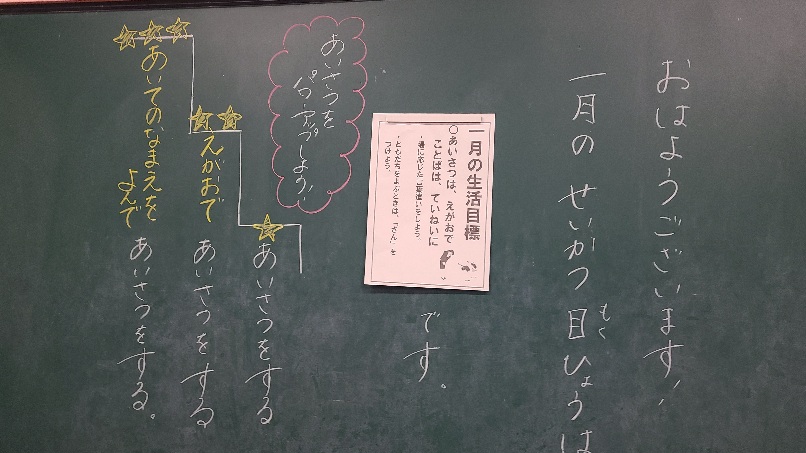 おはようございます!
一月の せいかつ目ひょうは
もく
一月の生活目標
○あいさつは、えがおで
ことばは、ていねいに
・場に応じた言葉遣いをしよう。
・ともだちをよぶときは、「さん」を
つけよう。
です。
あいさつを
パワーアップしよう!
あいさつをする
えがおで あいさつをする
あいてのなまえを
よんで あいさつをする。